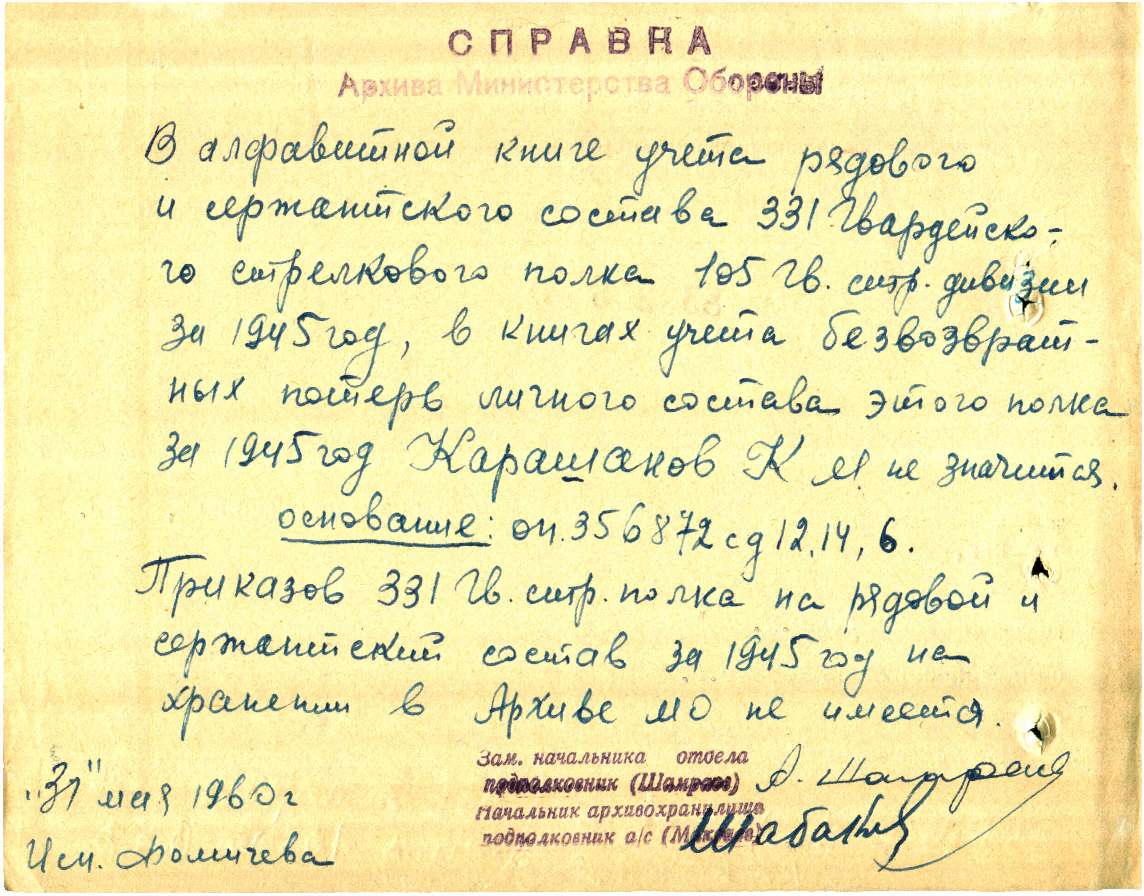 СПРАВКА
Архива Министерства Обороны
В алфавитной книге учета рядового
и сержантского состава 331 Гвардейско-
го стрелкового полка 105 Гв. стр. дивизии
за 1945 год, в книгах учета безвозврат-
ных потерь личного состава этого полка
за 1945 год Карашаков К М не значится.
основание: оп. 356872с д 12, 14, 6.
Приказов 331 Гв. стр. полка на рядовой и
сержантский состав за 1945 год на
хранении в Архиве МО не имеется.
Зам. начальника отдела
подполковник (Шамраев)
Начальник архивохранилища
подполковник а/с
"31" мая 1960 г
Исп. Фомичева